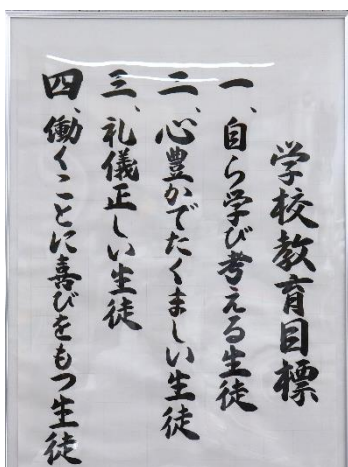 学校教育目標
一、自ら学び考える生徒
二、心豊かでたくましい生徒
三、礼儀正しい生徒
四、働くことに喜びをもつ生徒